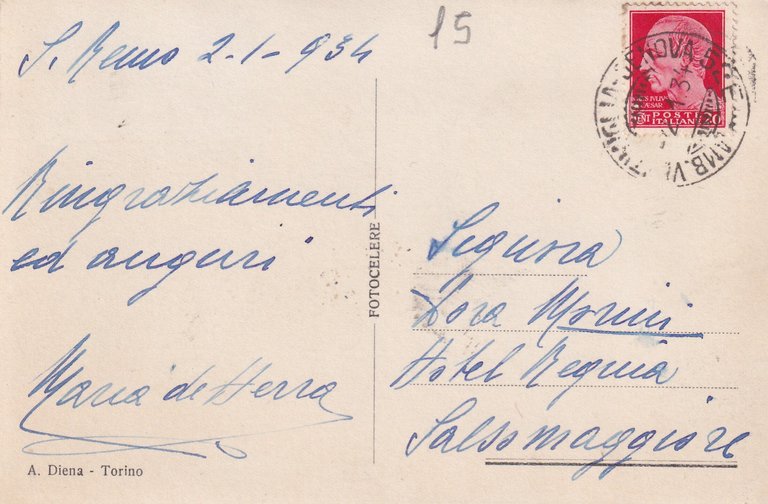 15
S. Remo 2-1-934
Ringraziamenti
ed auguri
Maria de
A. Diena - Torino
FOTOCELERE
POSTE
ITALIANE
20
AMB. VENTIMIGLIA-GENOVA
Signora
Dora Morini
Hotel Regina
Salsomaggiore